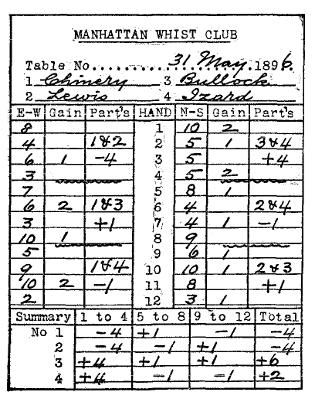 MANHATTAN WHIST CLUB
Table No............ 31 May 1896
1 Chinery 3 Bullock
2 Lewis 4 Izard
E-W Gain Part's HAND N-S Gain Part's
8 1 10 2
4 1&2 2 5 1 3&4
6 1 -4 3 5 +4
3 4 5 2
7 5 8 1
6 2 1&3 6 4 2&4
3 +1 7 4 1 -1
10 1 8 9
5 9 6 1
9 1&4 10 10 1 2&3
10 2 -1 11 8 +1
2 12 3 1
Summary 1 to 4 5 to 8 9 to 12 Total
No 1 -4 +1 -1 -4
2 -4 -1 +1 -4
3 +4 +1 +1 +6
4 +4 -1 -1 +2